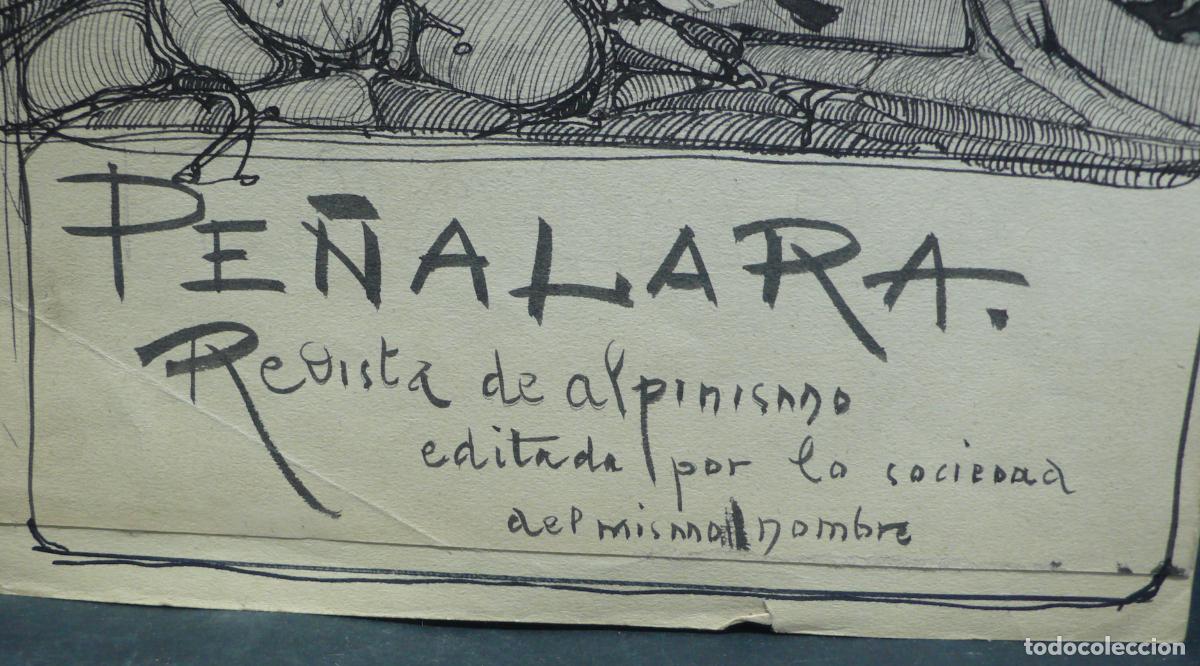 PEÑALARA.
Revista de alpinismo
editada por la sociedad
del mismo nombre
todocoleccion